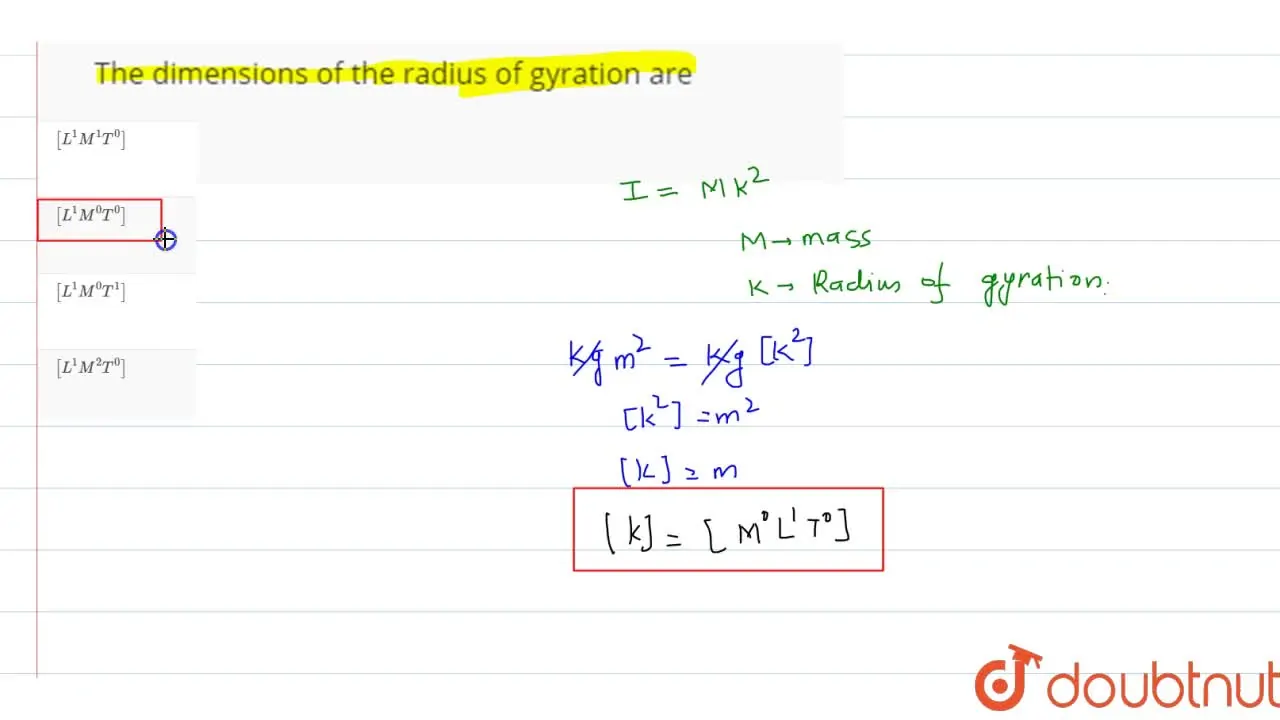 The dimensions of the radius of gyration are
[L¹M¹T⁰]
[L¹M⁰T⁰]
[L¹M⁰T¹]
[L¹M²T⁰]
I = MK²
M → mass
K → Radius of gyration.
Kg m² = Kg [K²]
[K²] = m²
[K] = m
[K] = [M⁰L¹T⁰]
doubtnut